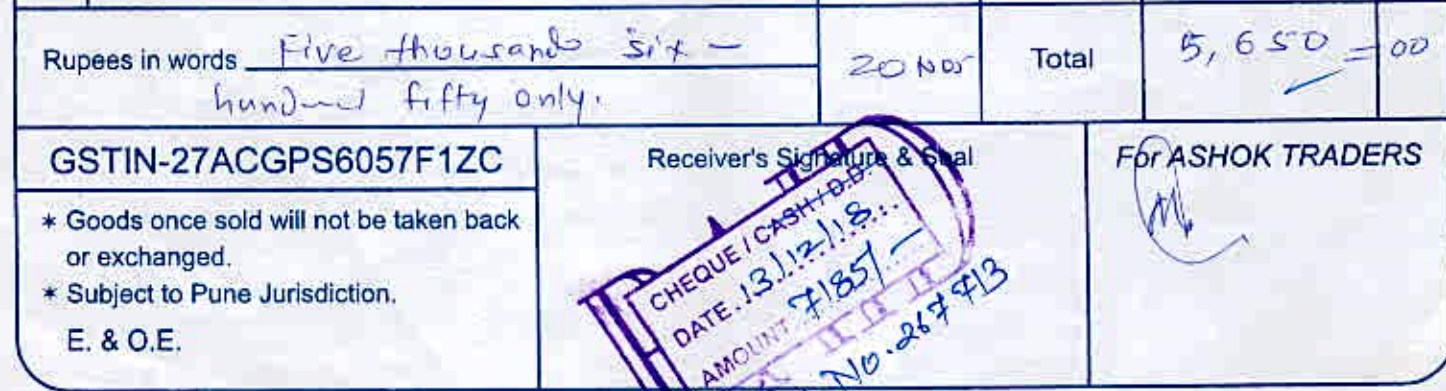 Rupees in words Five thousand six –
hundred fifty only.
20 Nos
Total
5,650 = 00
GSTIN-27ACGPS6057F1ZC
* Goods once sold will not be taken back
or exchanged.
* Subject to Pune Jurisdiction.
E. & O.E.
Receiver's Signature & Seal
CHEQUE / CASH / D.D.
DATE. 13/12/18...
AMOUNT 7185/-
No. 267713
For ASHOK TRADERS